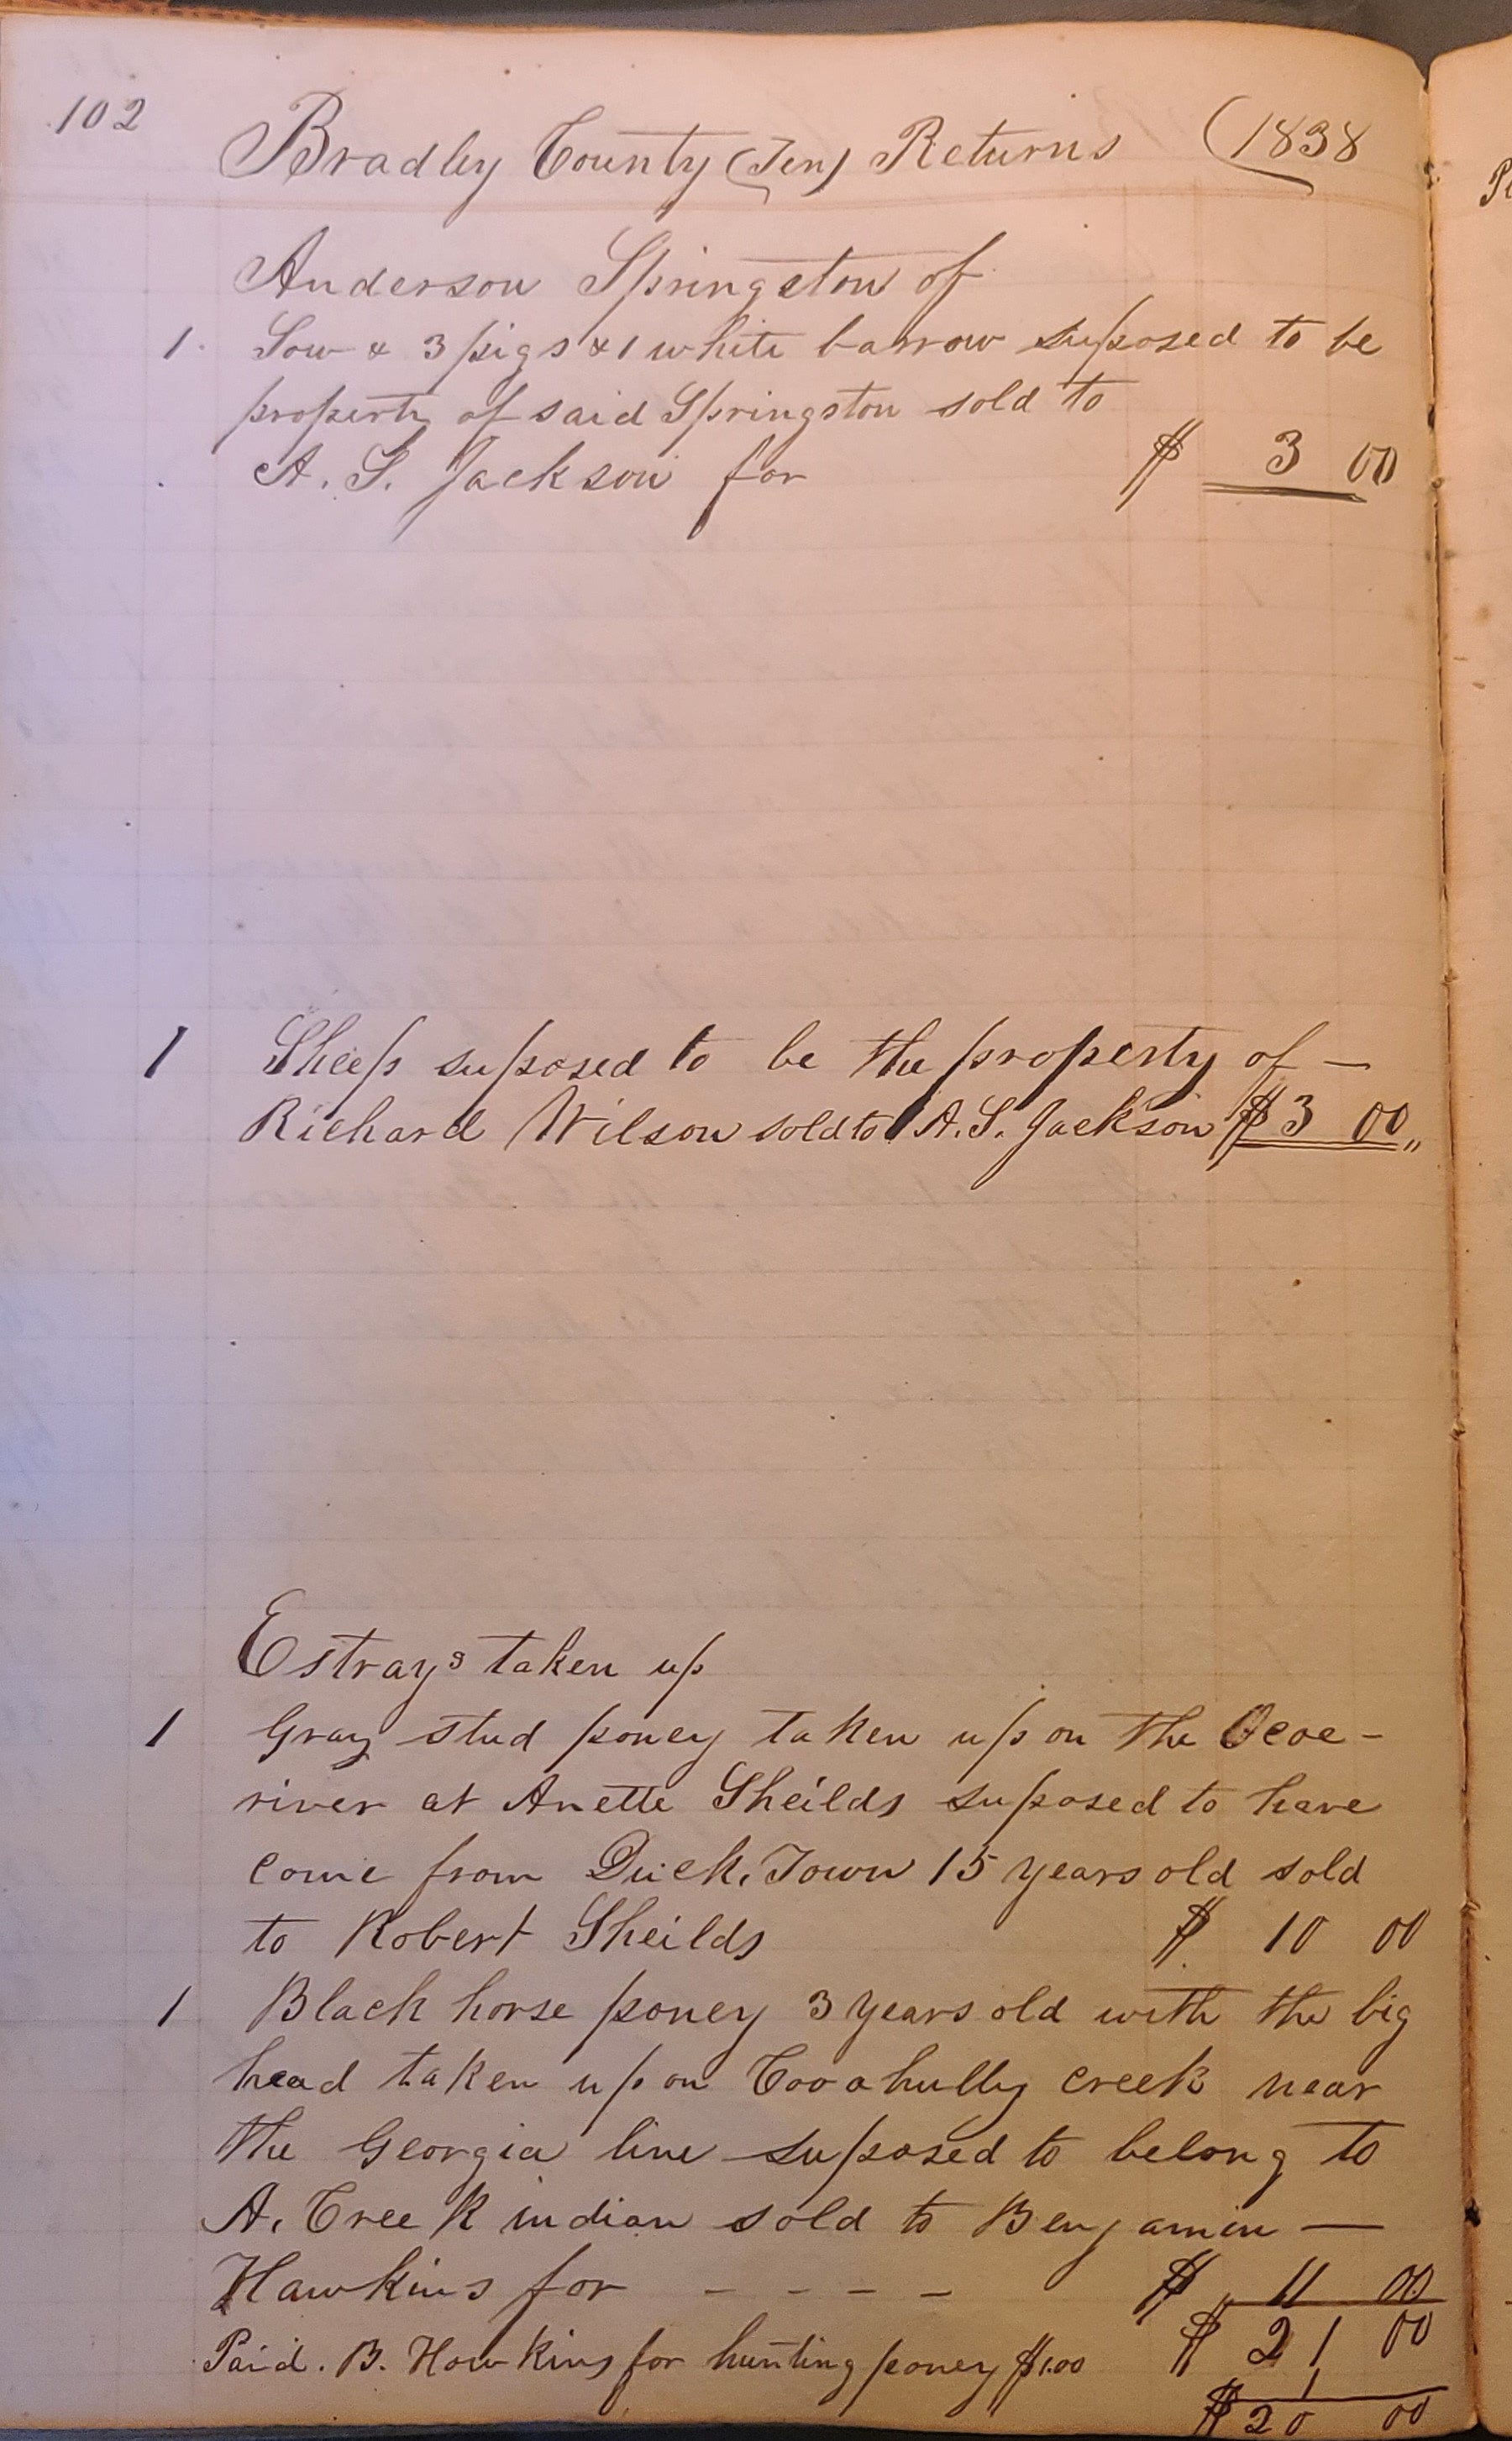 102
Bradley County (Ten) Returns (1838
Anderson Springston of
1. Sow & 3 pigs & 1 white barrow suposed to be
property of said Springston sold to
A. S. Jackson for $ 3 00
1 Sheep suposed to be the property of —
Richard Wilson sold to A. S. Jackson $3 00 "
Estrays taken up
1 Gray stud poney taken up on the Ocoe -
river at Anette Sheilds suposed to have
come from Duck. Town 15 years old sold
to Robert Sheilds $ 10 00
1 Black horse poney 3 years old with the big
head taken up on Cooahully creek near
the Georgia line suposed to belong to
A. Creek indian sold to Benjamin —
Hawkins for - - - - $ 11 00
Paid. B. Hawkins for hunting poney $1.00 $ 21 00
1
$ 20 00